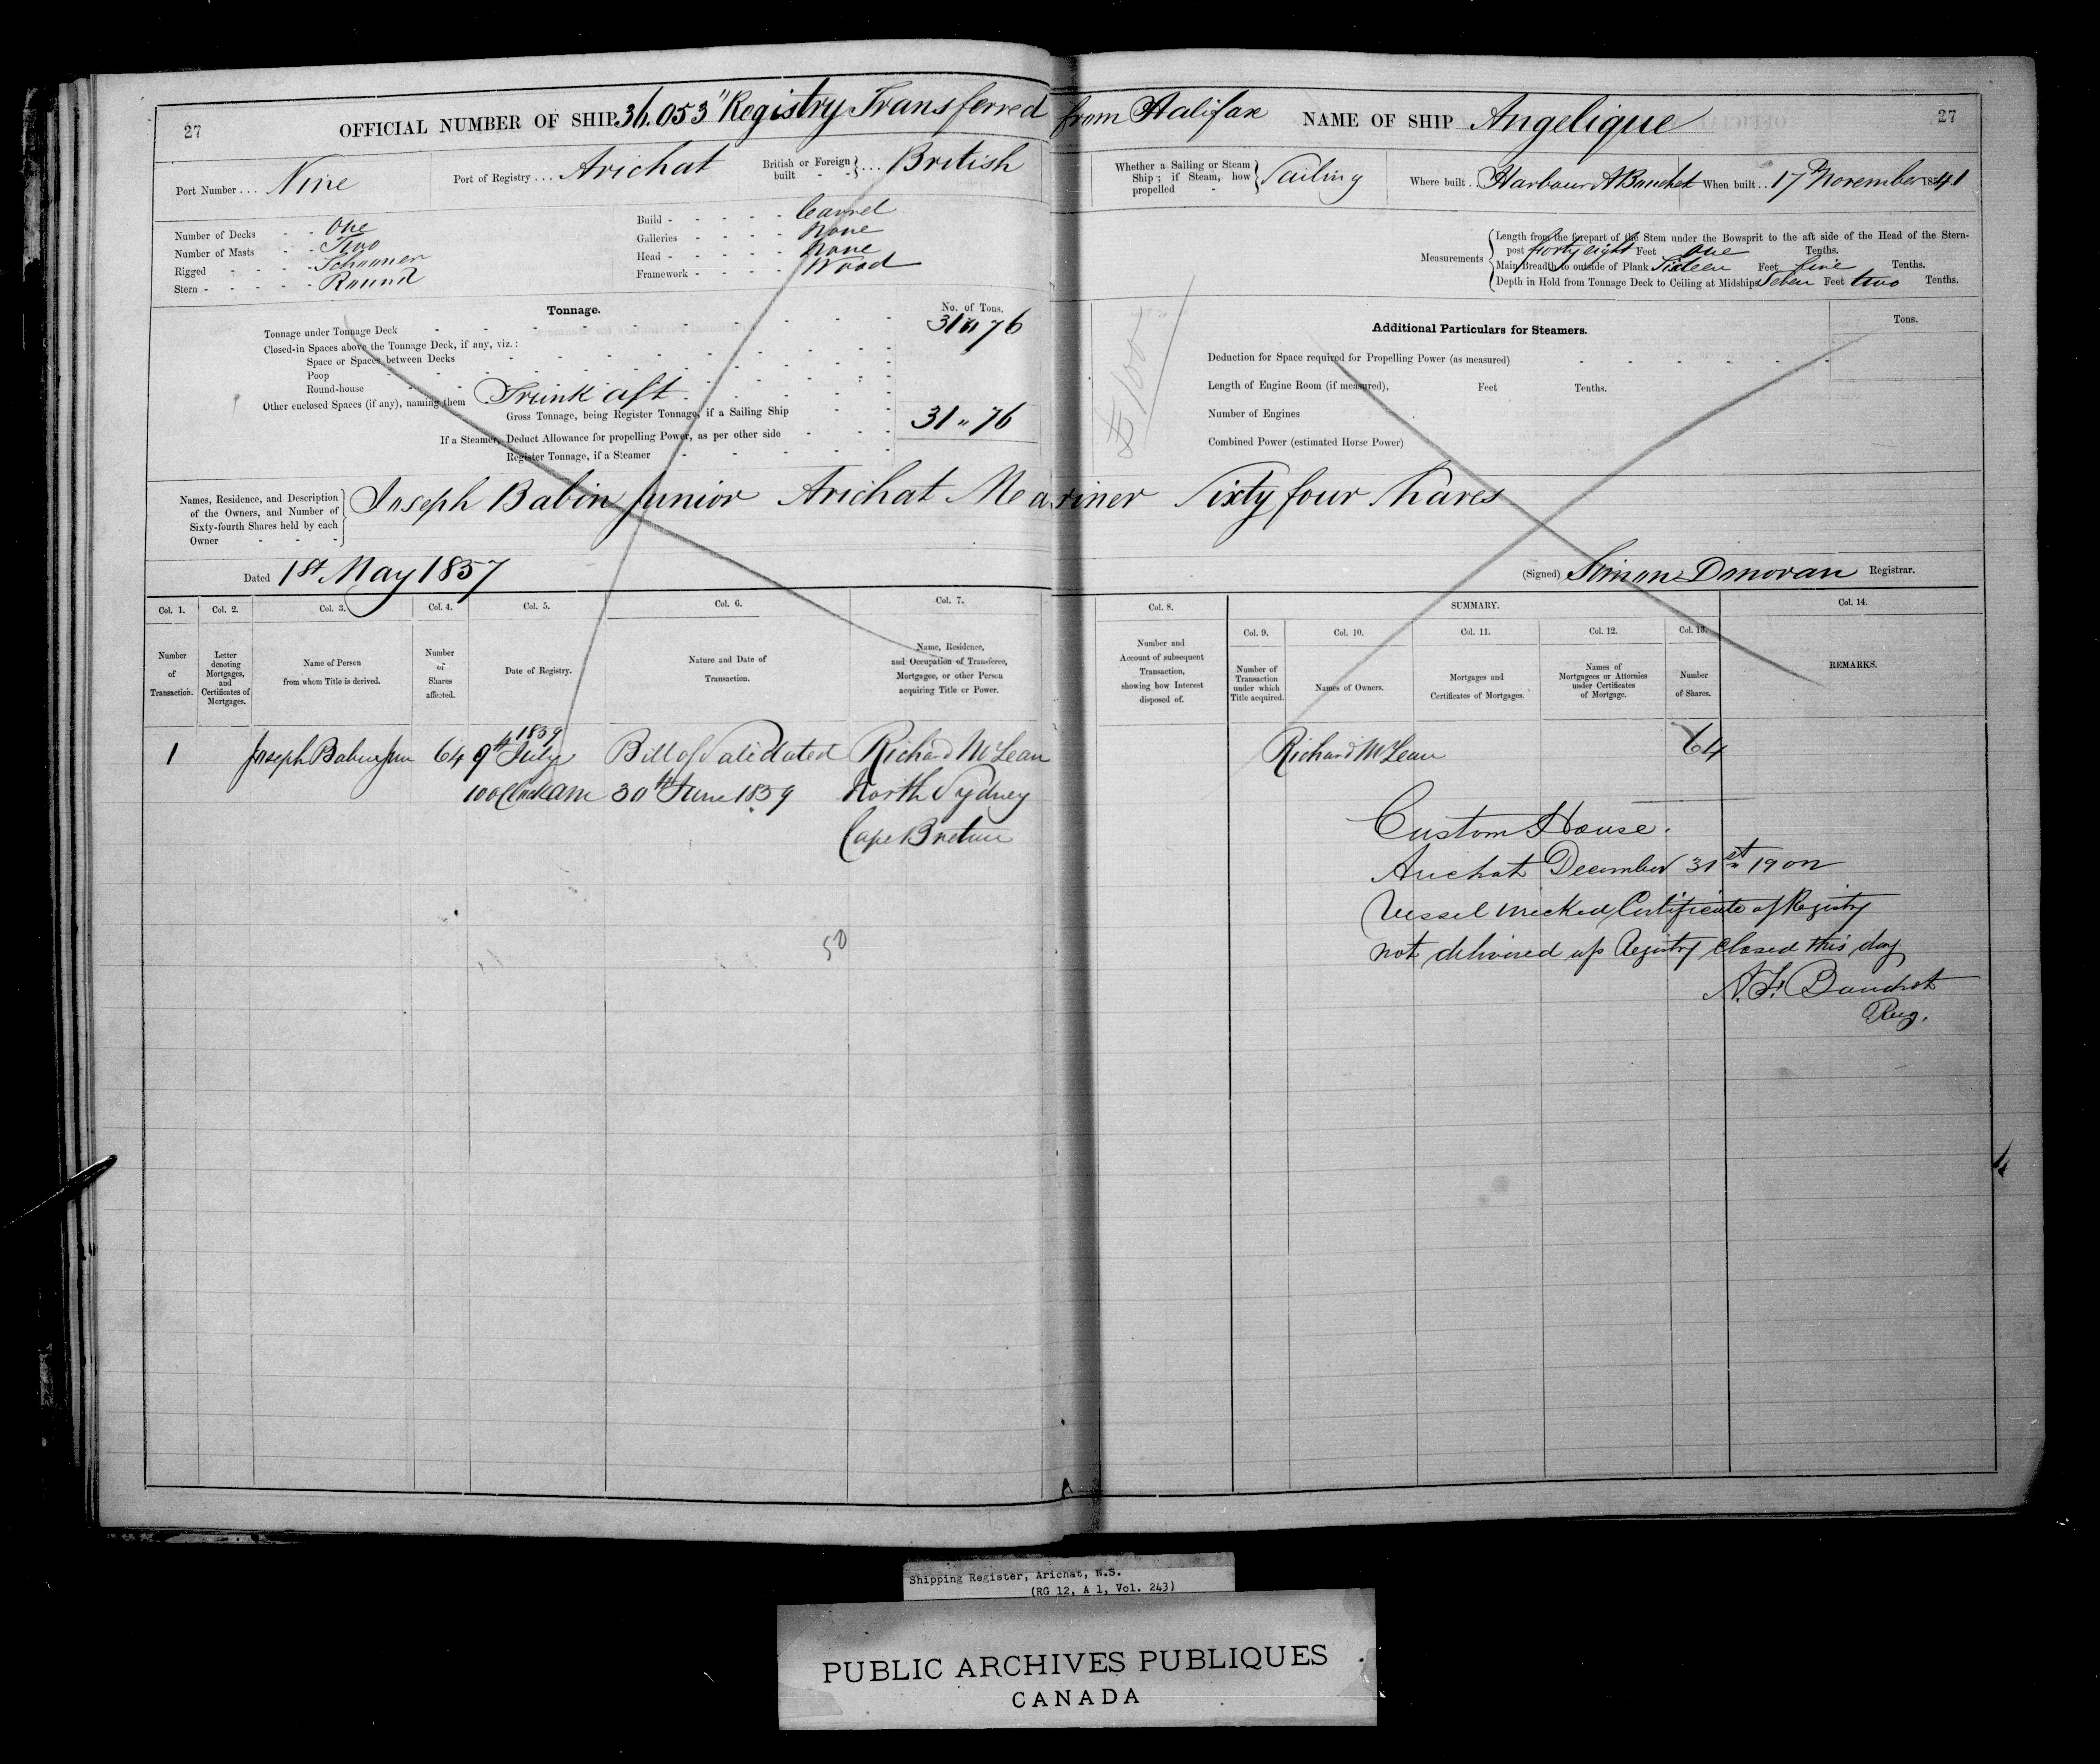 27 OFFICIAL NUMBER OF SHIP 36.053 "Registry Transferred from Halifax NAME OF SHIP Angelique 27
Port Number . . . Nine Port of Registry . . . Arichat British or Foreign built - - } . . . British Whether a Sailing or Steam Ship; if Steam, how propelled - } Sailing Where built . . Harbour A Bouchet When built . . 17th November 1841
Number of Decks - - One
Number of Masts - - Two
Rigged - - - - Schooner
Stern - - - - - Round
Build - - - - - - Carvel
Galleries - - - - None
Head - - - - - None
Framework - - - - Wood
Measurements { Length from the forepart of the Stem under the Bowsprit to the aft side of the Head of the Stern-
post forty eight Feet One Tenths.
Main Breadth to outside of Plank Sixteen Feet five Tenths.
Depth in Hold from Tonnage Deck to Ceiling at Midships Seven Feet two Tenths.
Tonnage. No. of Tons.
Tonnage under Tonnage Deck 31 " 76
Closed-in Spaces above the Tonnage Deck, if any, viz.:
Space or Spaces between Decks
Poop
Round-house
Other enclosed Spaces (if any), naming them Trunk aft
Gross Tonnage, being Register Tonnage, if a Sailing Ship 31 " 76
If a Steamer, Deduct Allowance for propelling Power, as per other side
Register Tonnage, if a Steamer
Additional Particulars for Steamers. Tons.
Deduction for Space required for Propelling Power (as measured)
Length of Engine Room (if measured), Feet Tenths.
Number of Engines
Combined Power (estimated Horse Power)
Names, Residence, and Description
of the Owners, and Number of
Sixty-fourth Shares held by each
Owner - - -
Joseph Babin Junior Arichat Mariner Sixty four Shares
Dated 1st May 1857 (Signed) Simon Donovan Registrar.
Col. 1. Col. 2. Col. 3. Col. 4. Col. 5. Col. 6. Col. 7. Col. 8. SUMMARY. Col. 14.
Col. 9. Col. 10. Col. 11. Col. 12. Col. 13.
Number of Transaction.
Letter denoting Mortgages, and Certificates of Mortgages.
Name of Person from whom Title is derived.
Number of Shares affected.
Date of Registry.
Nature and Date of Transaction.
Name, Residence, and Occupation of Transferee, Mortgagee, or other Person acquiring Title or Power.
Number and Account of subsequent Transaction, showing how Interest disposed of.
Number of Transaction under which Title acquired.
Names of Owners.
Mortgages and Certificates of Mortgages.
Names of Mortgagees or Attornies under Certificates of Mortgage.
Number of Shares.
REMARKS.
1859
1 Joseph Babin Jun 64 9th July Bill of Sale dated Richard McLean Richard McLean 64
am 30th June 1859 North Sydney
Cape Breton
50
Custom House.
Arichat December 31st 1902
Vessel wrecked Certificate of Registry
not delivered up Registry closed this day
Reg.
Shipping Register, Arichat, N.S.
(RG 12, A 1, Vol. 243)
PUBLIC ARCHIVES PUBLIQUES
CANADA